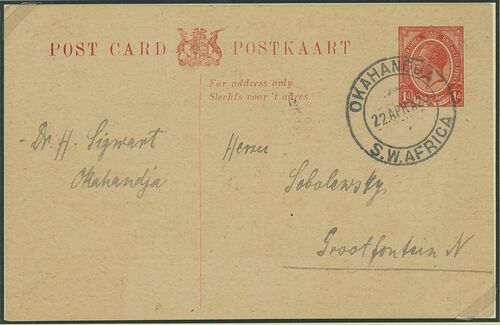 POST CARD POSTKAART
For address only.
Slechts voor 't adres.
OKAHANDJA
22 APR
S.W. AFRICA
Dr. H. Sigwart
Okahandja
Herrn
Sobolewsky
Grootfontein N